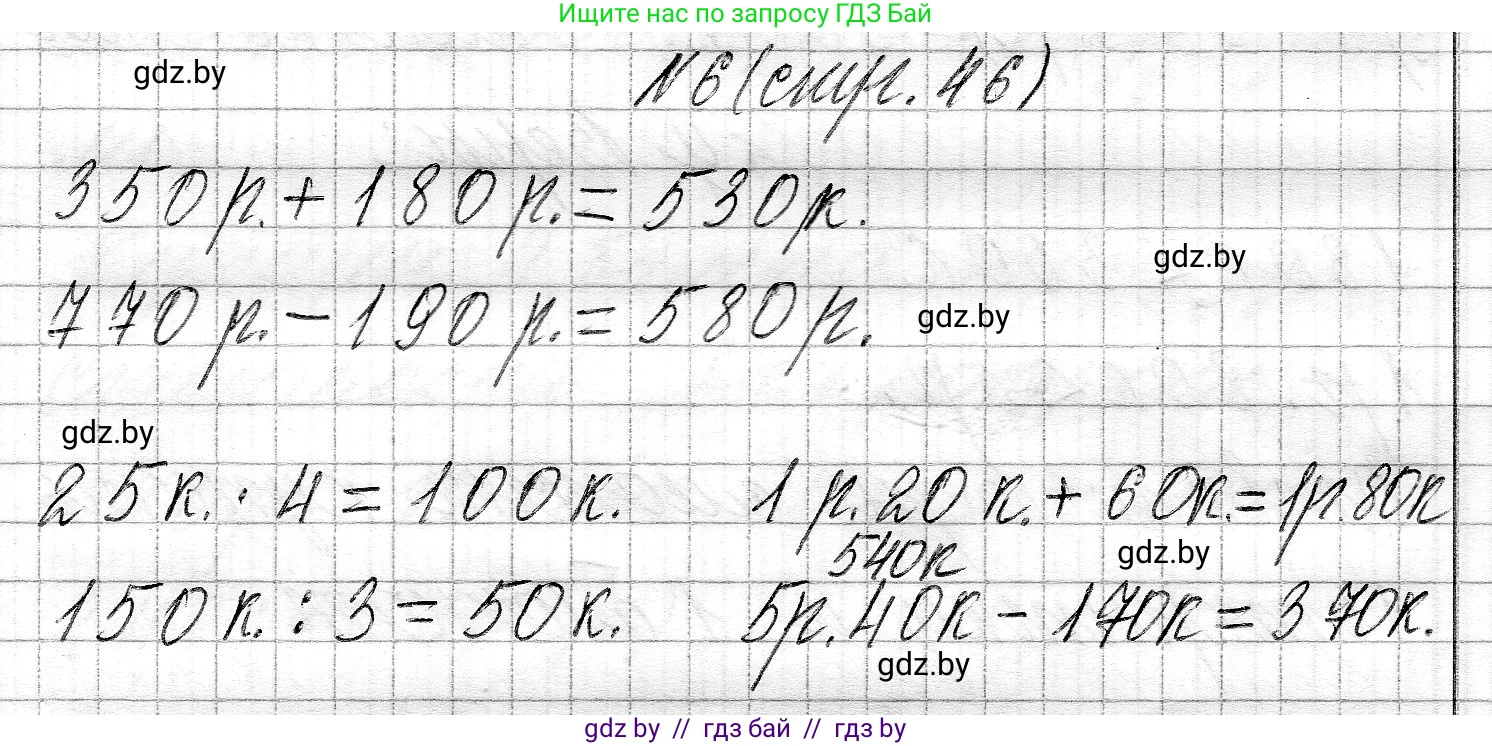 Ищите нас по запросу ГДЗ Бай
gdz.by
№6 (стр. 46)
350 р. + 180 р. = 530 к.
gdz.by
770 р. - 190 р. = 580 р.
gdz.by
gdz.by
25 к. · 4 = 100 к. 1 р. 20 к. + 60к. = 1р. 80к
540к
gdz.by
150 к. : 3 = 50 к. 5р. 40к - 170к = 370к.
gdz.by
gdz by // гдз бай // гдз by